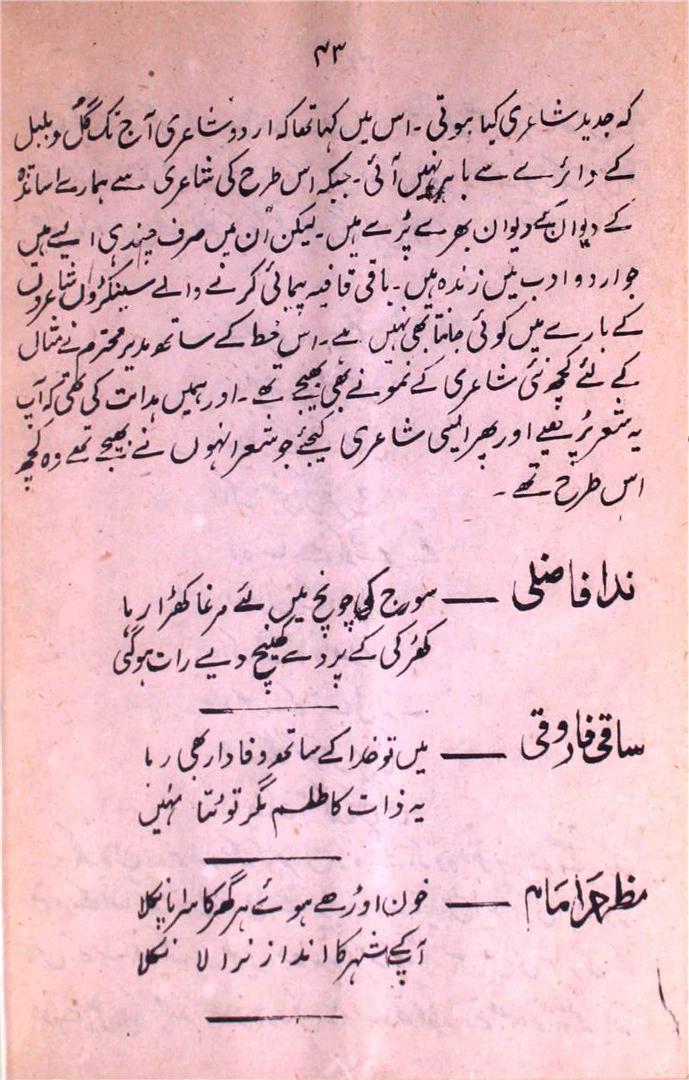 ۴۳
کہ جدید شاعری کیا ہوتی ۔ اس میں کہا تھا کہ اردو شاعری آج تک گل و بلبل
کے دائرے سے باہر نہیں آئی ۔ جبکہ اس طرح کی شاعری سے ہمارے اساتذہ
کے دیوان کے دیوان بھرے پڑے ہیں ۔ لیکن اُن میں صرف چند ہی ایسے ہیں
جو اردو ادب میں زندہ ہیں ۔ باقی قافیہ پیمائی کرنے والے سینکڑوں شاعروں
کے بارے میں کوئی جانتا بھی نہیں ہے ۔ اس خط کے ساتھ مدیر محترم نے مثال
کے لئے کچھ نئی شاعری کے نمونے بھی بھیجے تھے ۔ اور ہمیں ہدایت کی تھی کہ آپ
یہ شعر پڑھیے اور پھر ایسی شاعری کیجئے جو شعر انہوں نے بھیجے تھے وہ کچھ
اس طرح تھے ۔
ندا فاضلی — سورج کی چونچ میں لئے مرغا کھڑا رہا
کھڑکی کے پردے کھینچ دیے رات ہوگئی
ساقی فاروقی — میں تو خدا کے ساتھ وفادار بھی رہا
یہ ذات کا طلسم مگر ٹوٹتا نہیں
مظہر امام — خون اوڑھے ہوئے ہر گھر کا سراپا نکلا
آپ کے شہر کا انداز نرالا نکلا